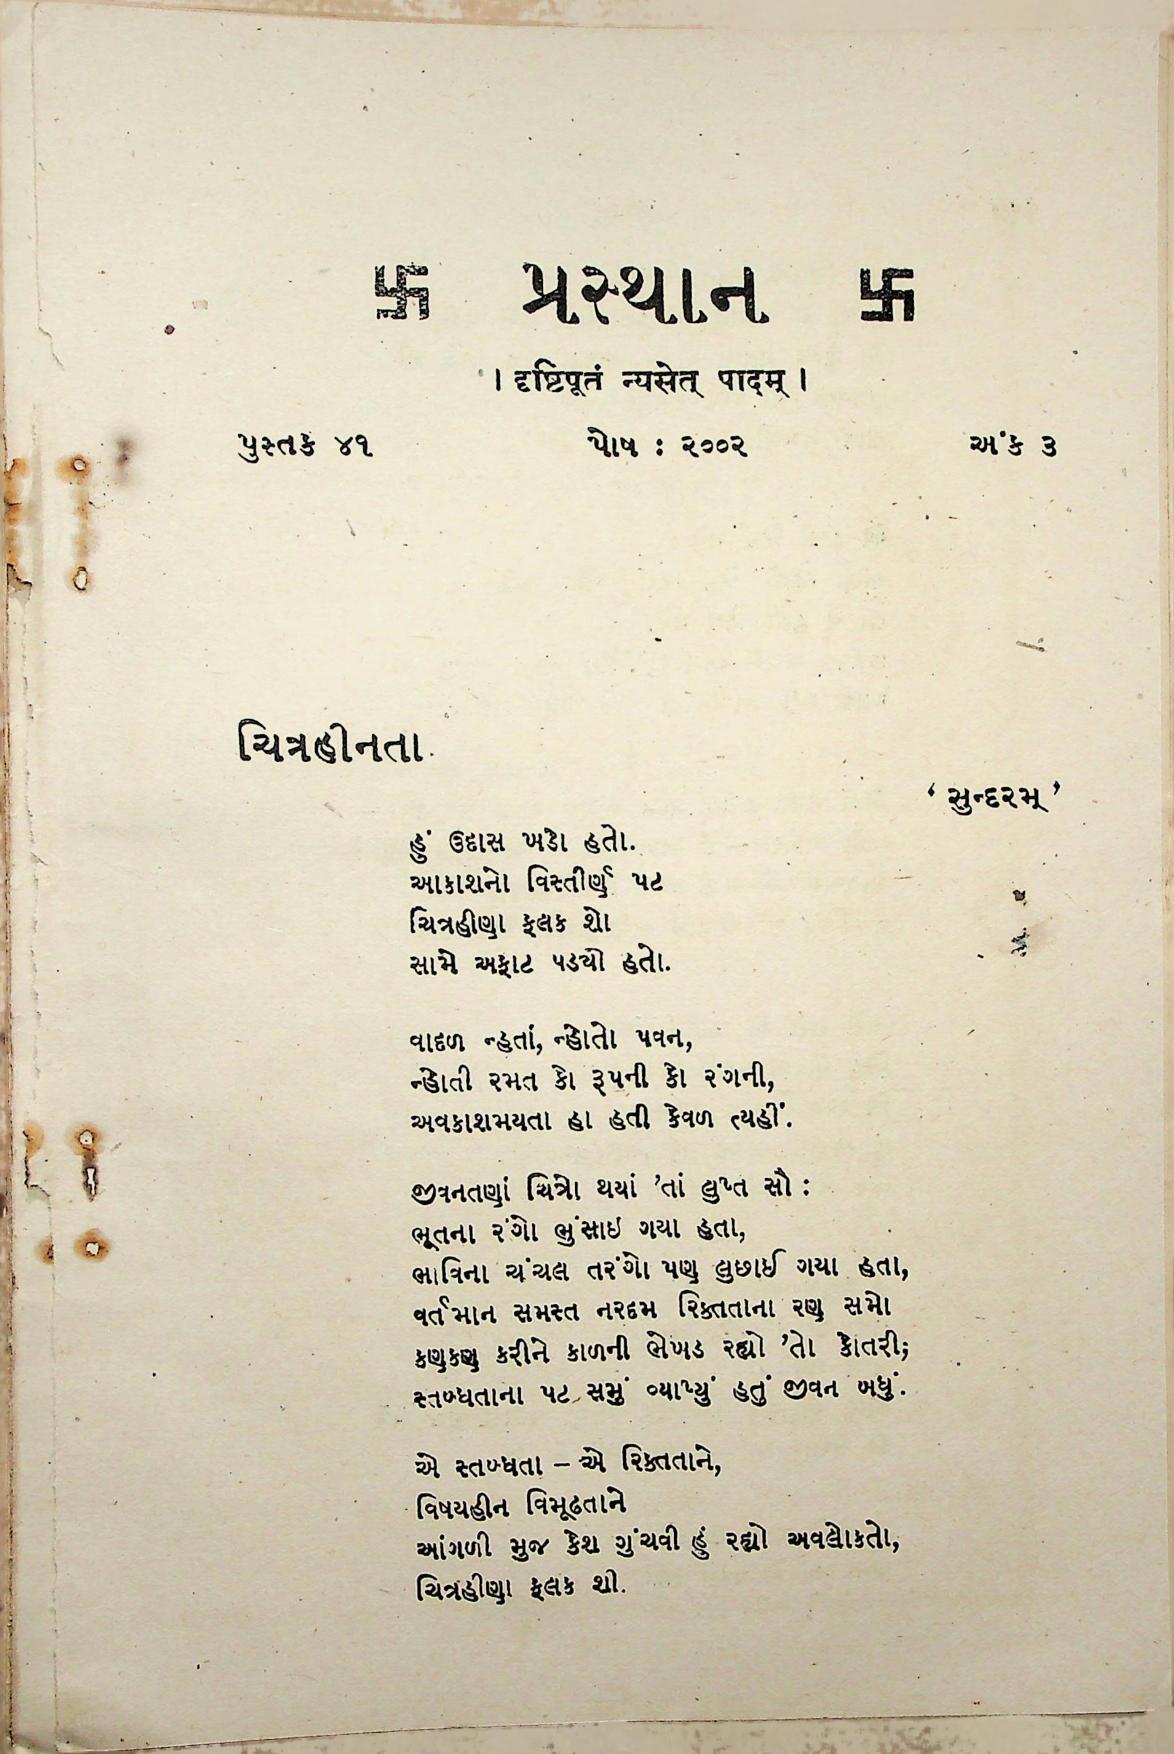 卐 પ્રસ્થાન 卐
। दृष्टिपूतं न्यसेत् पादम् ।
પુસ્તક ૪૧ પોષ : ૨૦૦૨ અંક ૩
ચિત્રહીનતા
‘ સુન્દરમ્ ’
હું ઉદાસ ખડો હતો.
આકાશનો વિસ્તીર્ણ પટ
ચિત્રહીણા ફલક શો
સામે અફાટ પડ્યો હતો.
વાદળ ન્હતાં, ન્હોતો પવન,
ન્હોતી રમત કો રૂપની કો રંગની,
અવકાશમયતા હા હતી કેવળ ત્યહીં.
જીવનતણાં ચિત્રો થયાં ’તાં લુપ્ત સૌ :
ભૂતના રંગો ભુંસાઇ ગયા હતા,
ભાવિના ચંચલ તરંગો પણ લુછાઈ ગયા હતા,
વર્તમાન સમસ્ત નરદમ રિક્તતાના રણ સમો
કણકણ કરીને કાળની ભેખડ રહ્યો ’તો કોતરી;
સ્તબ્ધતાના પટ સમું વ્યાપ્યું હતું જીવન બધું.
એ સ્તબ્ધતા – એ રિક્તતાને,
વિષયહીન વિમૂઢતાને
આંગળી મુજ કેશ ગુંચવી હું રહ્યો અવલોકતો,
ચિત્રહીણા ફલક શી.